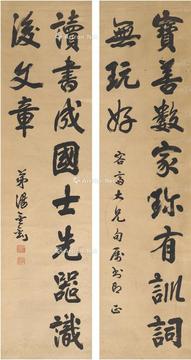 寶善數家珎有訓詞
無玩好
大兄句屬
正
讀書成國士先器識
後文章
弟潘